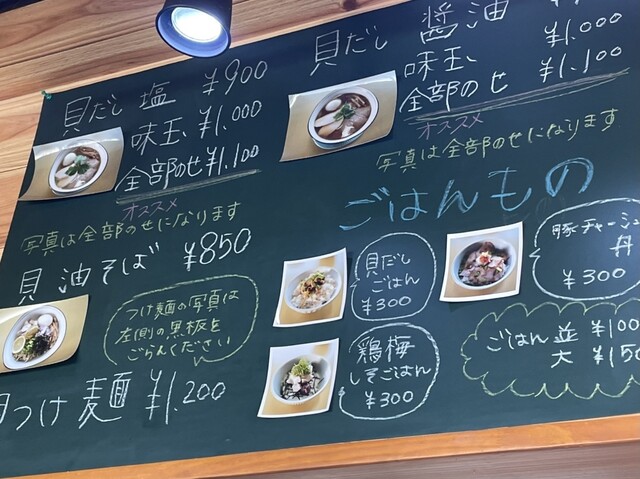 貝だし 塩 ¥900
味玉 ¥1.000
全部のせ ¥1.100
オススメ
写真は全部のせになります
貝だし 醤油
味玉 ¥1.000
全部のせ ¥1.100
オススメ
写真は全部のせになります
貝 油そば ¥850
つけ麺の写真は
左側の黒板を
ごらんください
つけ麺 ¥1.200
ごはんもの
貝だし
ごはん
¥300
豚チャーシュー
丼
¥300
鶏梅
しそごはん
¥300
ごはん 並 ¥100
大 ¥150